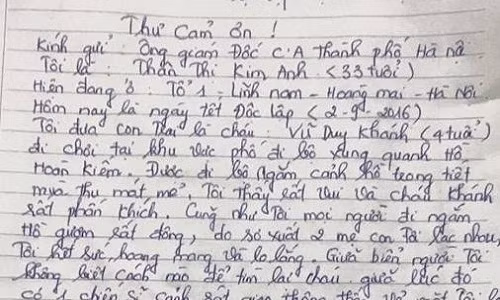 Thư Cảm ơn !
Kính gửi : Ông giám Đốc C.A thành phố Hà nội
Tôi là : Thân Thị Kim Anh (33 tuổi)
Hiện đang ở : Tổ 1, Lĩnh nam - Hoàng mai - Hà Nội
Hôm nay là ngày tết Độc lập (2-9-2016)
Tôi đưa con trai là cháu : Vũ Duy Khánh (4 tuổi)
đi chơi tại khu vực phố đi bộ xung quanh Hồ
Hoàn Kiếm. Được đi bộ ngắm cảnh hồ trong tiết
mùa thu mát mẻ. Tôi thấy rất vui và cháu Khánh
rất phấn khích. Cũng như tôi mọi người đi ngắm
Hồ gươm rất đông, do sơ xuất 2 mẹ con tôi lạc nhau,
Tôi hết sức hoang mang và lo lắng. Giữa biển người Tôi
không biết cách nào để tìm lại cháu giữa lúc đó
có 1 chiến sĩ cảnh sát giao thông